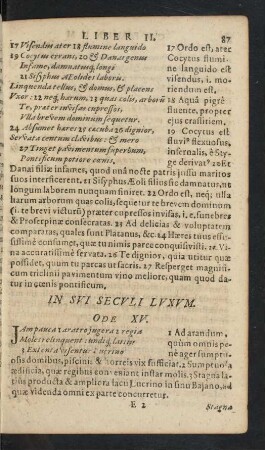 LIBER II. 87
17 Visendus ater 18 flumine languido
19 Cocytus errans, 20 & Danai genus
Infame, damnatusq́; longi
21 Sisyphus Æolides laboris.
Linquenda tellus, & domus, & placens
Vxor: 22 neq; harum, 23 quas colis, arborū
Te, præter invisas cupressos,
Vlla brevem dominum sequetur.
24 Absumet hæres 25 cæcuba 26 dignior,
Servata centum clavibus: & mero
27 Tinget pavimentum superbum,
Pontificum potiore cœnis.
17 Ordo est, ater
Cocytus flumi-
ne languido est
visendus, i, mo-
riendum est.
18 Aqua pigrè
fluente, propter
19 Cocytus est
fluvi9 flexuosus,
infernalis. à Sty-
ge derivat9 20 Et
Danai filiæ infames, quod una nocte patris jussu maritos
suos interfecerint. 21 Sisyphus Æoli filius est damnatus, ne
longum laborem nunquam finiret. 22 Ordo est, neq; ulla
harum arborum quas colis, sequetur te brevem dominum
(i. te brevi victurū) præter cupressos invisas, i, e. funebres
& Proserpinæ consecratas. 23 Ad delicias & voluptatem
comparatas, quales sunt Platanus, &c. 24 Hæres tuus
simè consumet, quæ tu nimis parce conquisivisti. 25 Vi-
na accuratissimè servata. 26 Te dignior, quia utitur quæ
opibus, quàm tu parcus & avarus. 27 Resperget magnifi-
cum triclinii pavimentum vino meliore, quàm quod da-
tur in cœnis pontificum.
IN SVI SECVLI LVXVM.
ODE XV.
IAm pauca 1 aratro jugera 2 regiæ
Moles relinquent: undiq; latiùs
3 Extenta visentur 2 Lucrino
1 Ad arandum,
quùm omnia
pene ager sumptu-
osis domibus, piscinis & horreis vix sufficiat. 2 Sumptuosa
ædificia, quæ regibus conveniant instar molis. 3 Stagna la-
tius producta & ampliora lacu Lucrino in sinu Bajano, ad
quæ videnda omni ex parte concurretur.
E 2 Stagna